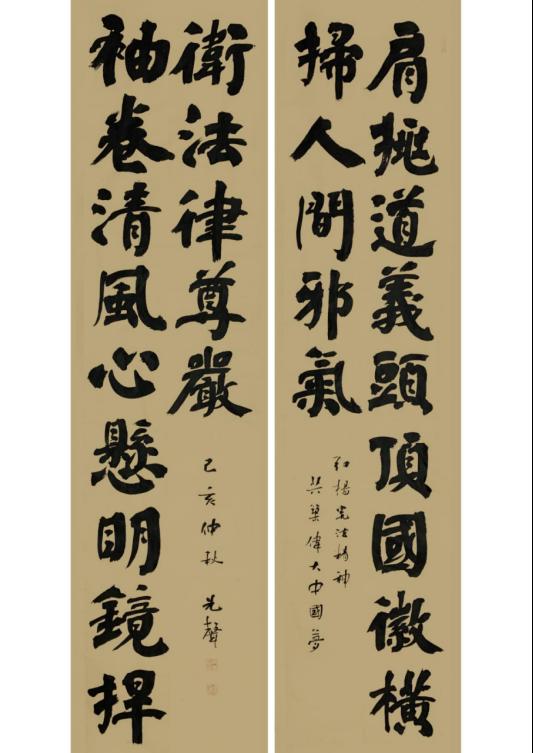 肩挑道義頭頂國徽橫
掃人間邪氣
弘揚宪法精神
共築偉大中國夢
袖卷清風心懸明鏡捍
衛法律尊嚴
己亥仲秋 先聲